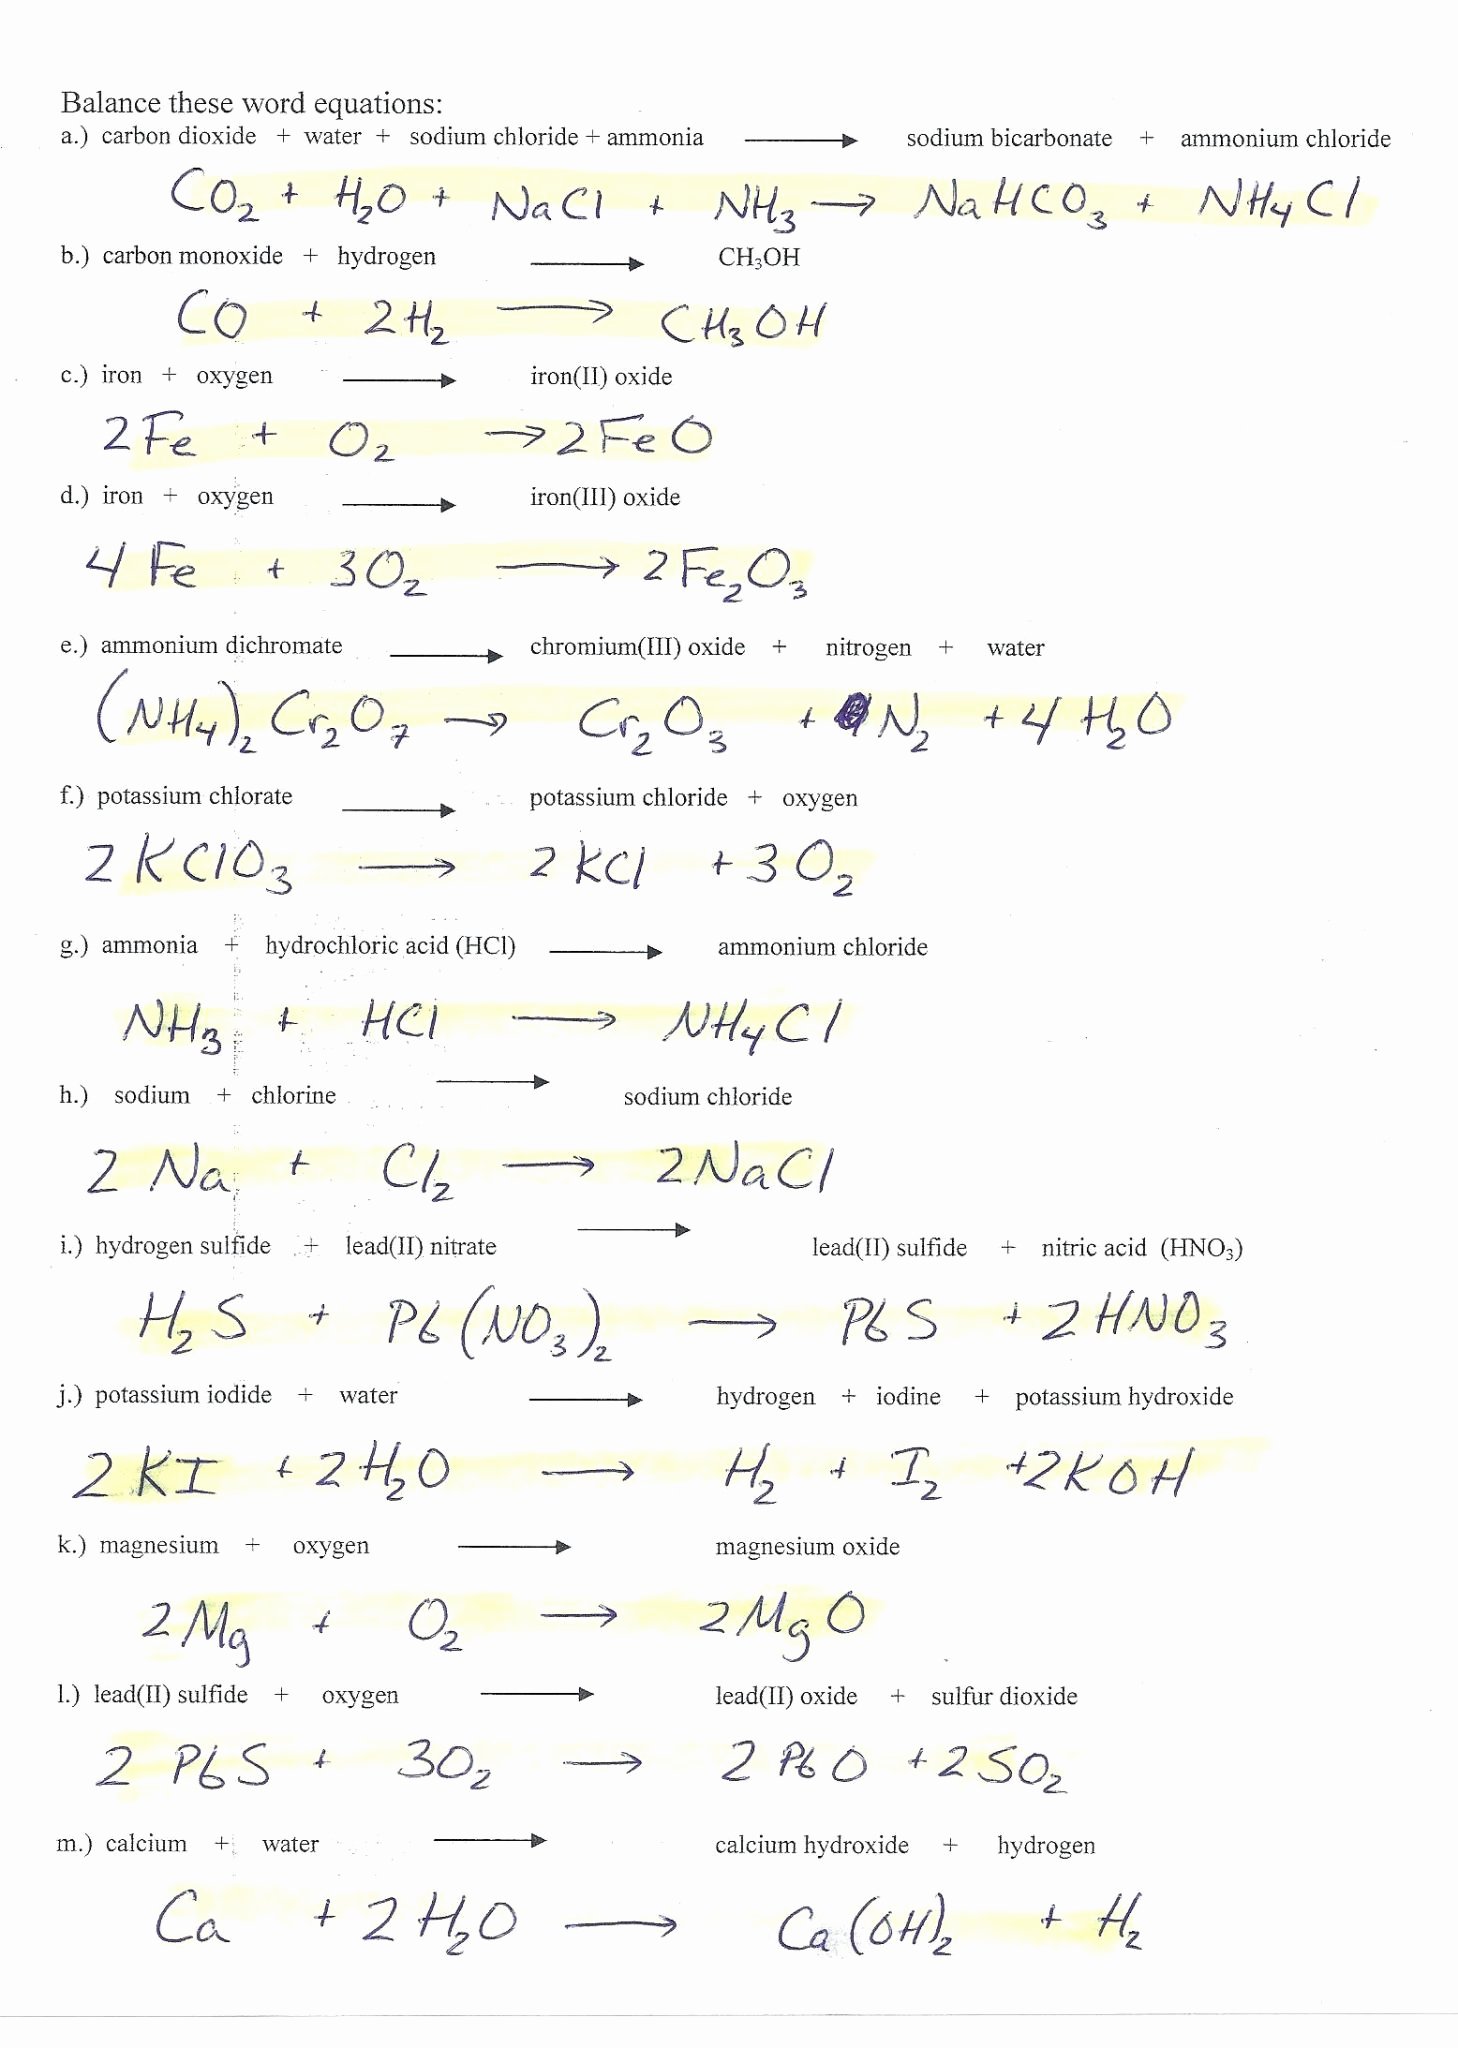 Balance these word equations:
a.) carbon dioxide + water + sodium chloride + ammonia ⟶ sodium bicarbonate + ammonium chloride
CO₂ + H₂O + NaCl + NH₃ → NaHCO₃ + NH₄Cl
b.) carbon monoxide + hydrogen ⟶ CH₃OH
CO + 2H₂ ⟶ CH₃OH
c.) iron + oxygen ⟶ iron(II) oxide
2Fe + O₂ → 2FeO
d.) iron + oxygen ⟶ iron(III) oxide
4Fe + 3O₂ ⟶ 2Fe₂O₃
e.) ammonium dichromate ⟶ chromium(III) oxide + nitrogen + water
(NH₄)₂Cr₂O₇ → Cr₂O₃ + N₂ + 4H₂O
f.) potassium chlorate ⟶ potassium chloride + oxygen
2KClO₃ ⟶ 2KCl + 3O₂
g.) ammonia + hydrochloric acid (HCl) ⟶ ammonium chloride
NH₃ + HCl ⟶ NH₄Cl
h.) sodium + chlorine ⟶ sodium chloride
2Na + Cl₂ ⟶ 2NaCl
i.) hydrogen sulfide + lead(II) nitrate ⟶ lead(II) sulfide + nitric acid (HNO₃)
H₂S + Pb(NO₃)₂ ⟶ PbS + 2HNO₃
j.) potassium iodide + water ⟶ hydrogen + iodine + potassium hydroxide
2KI + 2H₂O ⟶ H₂ + I₂ + 2KOH
k.) magnesium + oxygen ⟶ magnesium oxide
2Mg + O₂ ⟶ 2MgO
l.) lead(II) sulfide + oxygen ⟶ lead(II) oxide + sulfur dioxide
2PbS + 3O₂ ⟶ 2PbO + 2SO₂
m.) calcium + water ⟶ calcium hydroxide + hydrogen
Ca + 2H₂O ⟶ Ca(OH)₂ + H₂